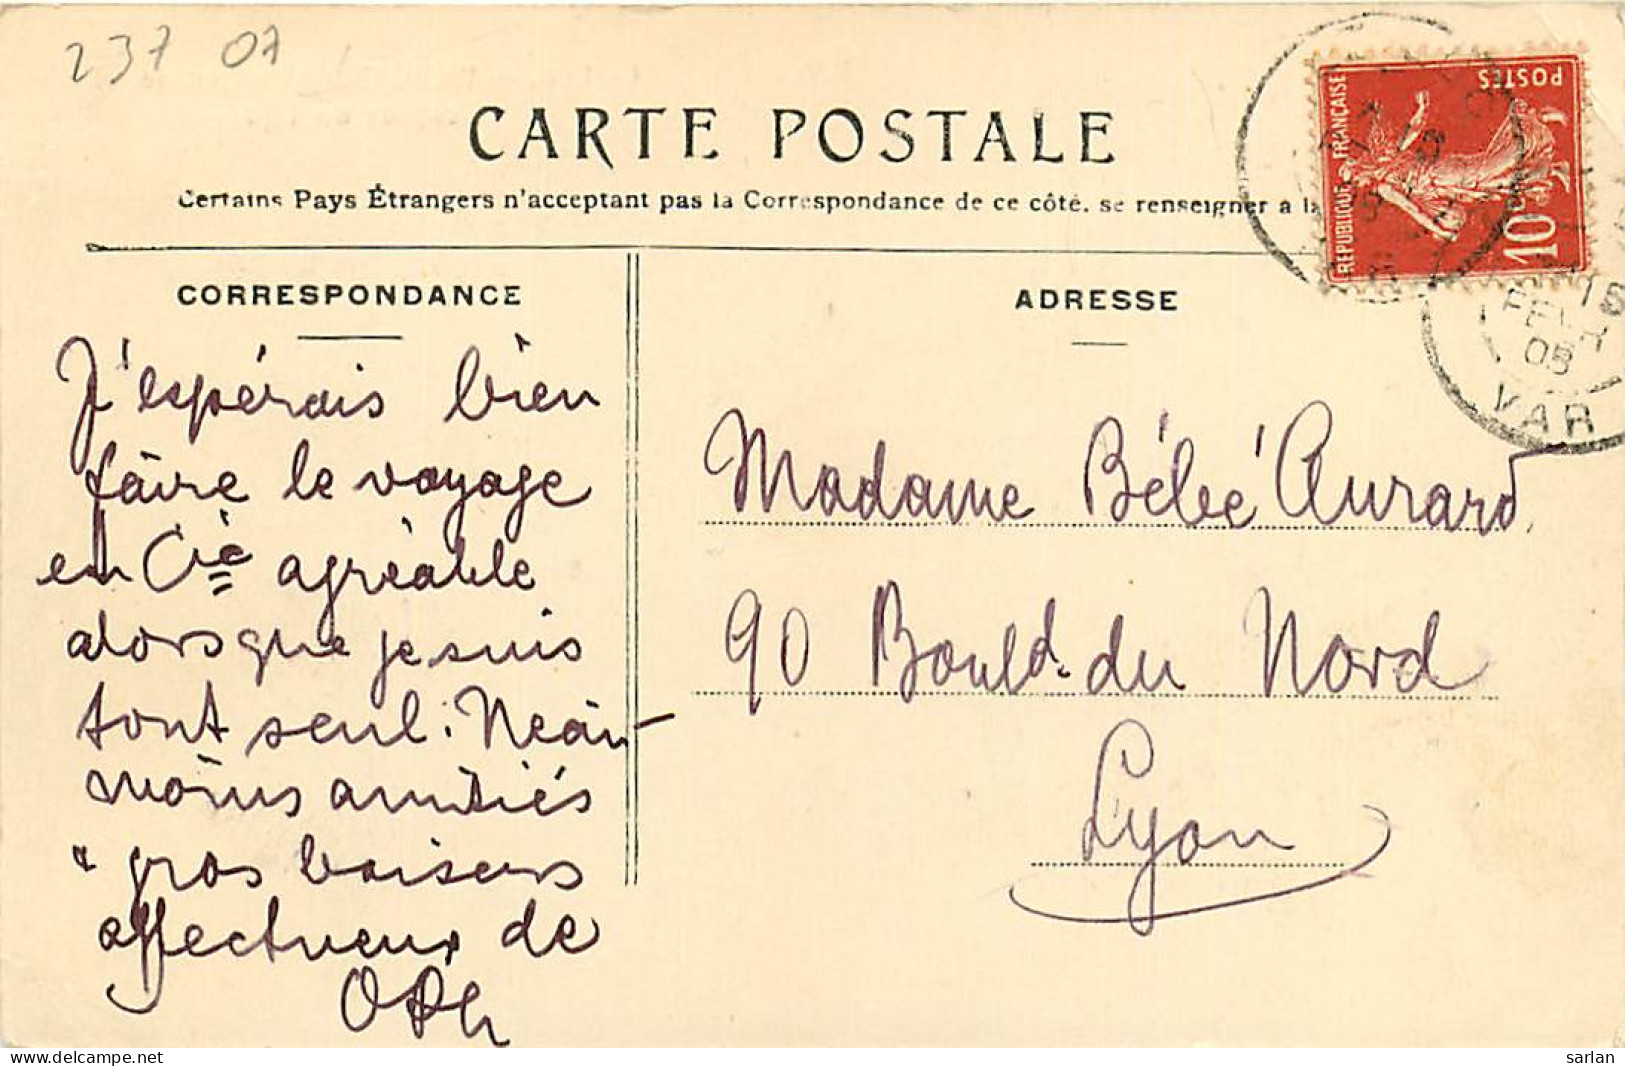 237 07
CARTE POSTALE
Certains Pays Étrangers n'acceptant pas la Correspondance de ce côté. se renseigner à la
CORRESPONDANCE
J'espérais bien
faire le voyage
en Cie agréable
alors que je suis
tout seul. Néan-
moins amitiés
& gros baisers
affectueux de
ADRESSE
Madame Bébé Aurard
90 Bould. du Nord
Lyon
REPUBLIQUE FRANÇAISE
POSTES
10
15
FEVR
08
VAR
sarlan